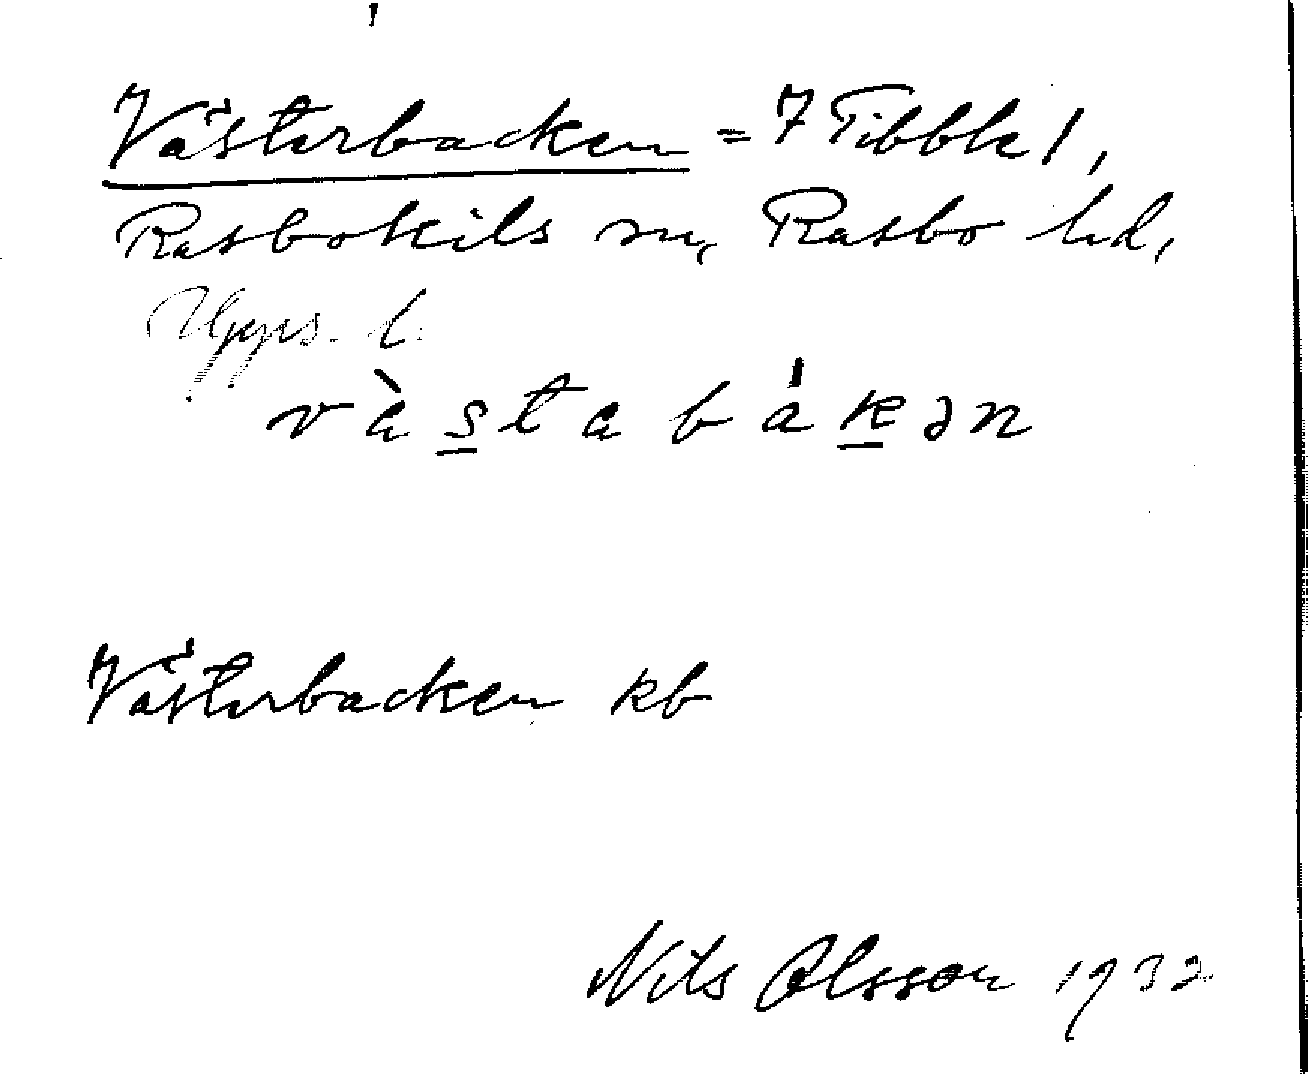 Västerbacken = 7 Tibble 1,
Rasbokils sn, Rasbo hd,
Upps. l.
vàstabákən
Västerbacken kb
Nils Olsson 1932